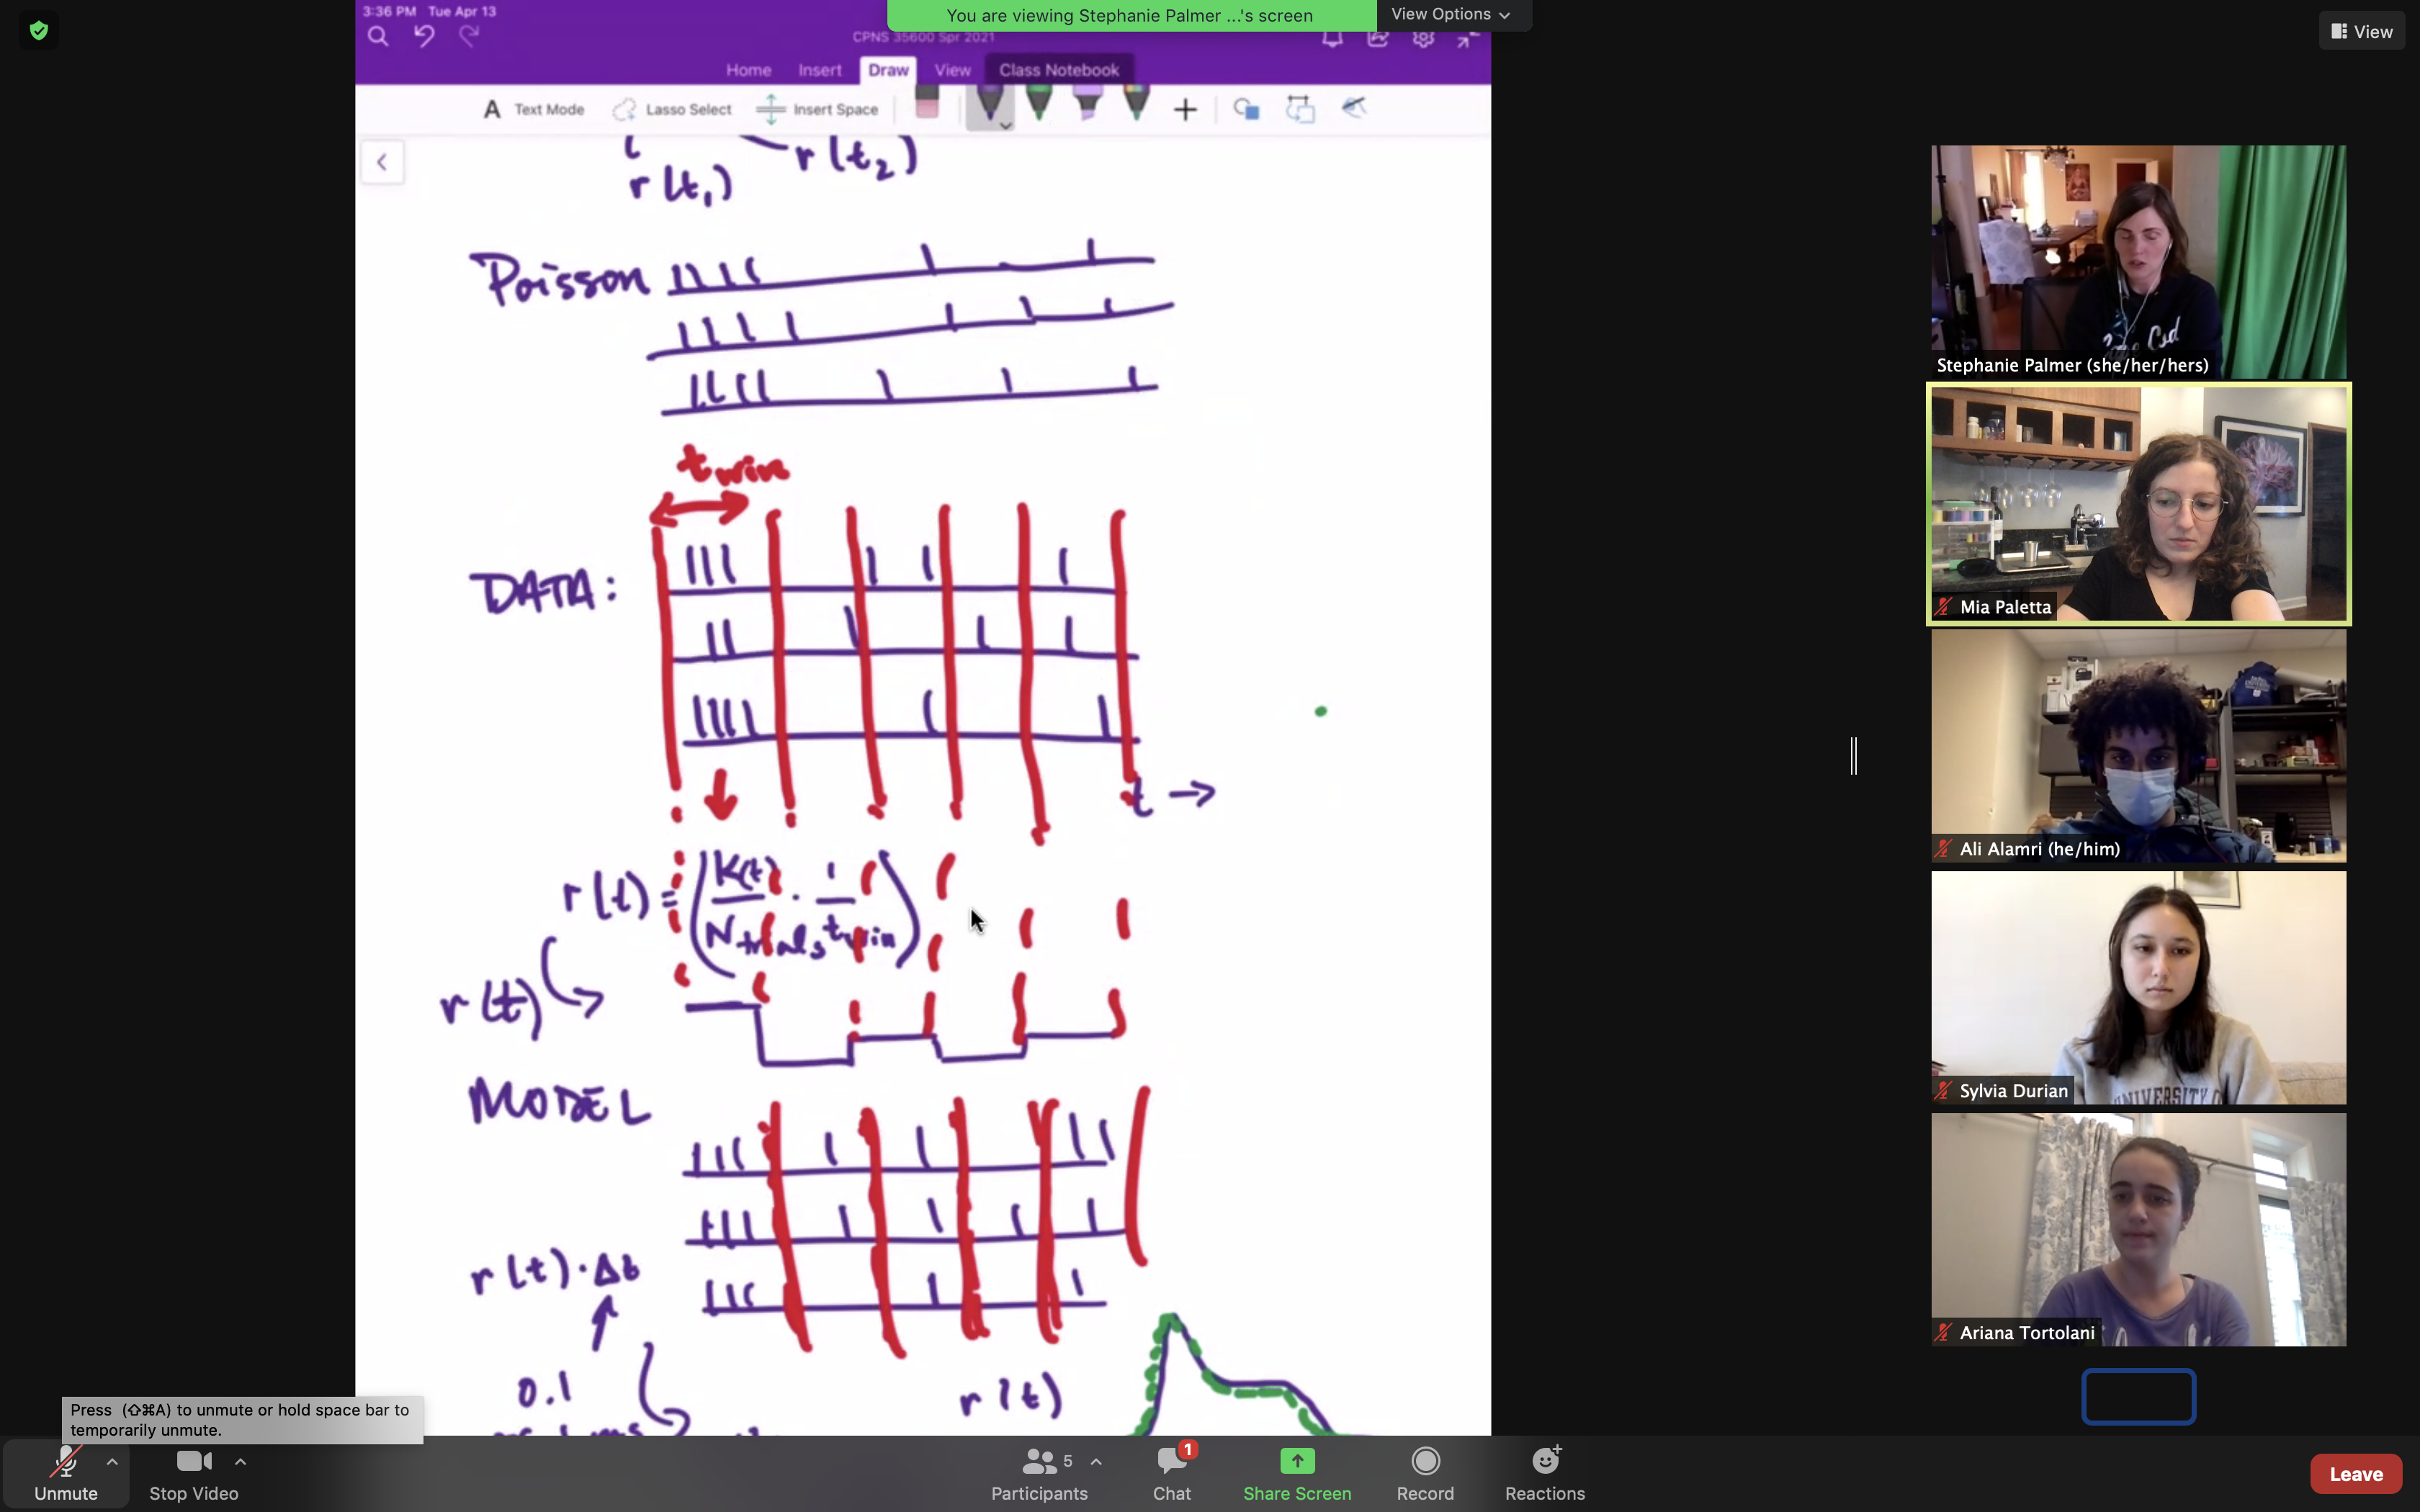 3:36 PM Tue Apr 13
You are viewing Stephanie Palmer ...'s screen
View Options
View
CPNS 35600 Spr 2021
Home Insert Draw View Class Notebook
A Text Mode Lasso Select Insert Space
r(t₂)
r(t₁)
Poisson
t win
DATA:
t →
r(t) = (K(t)/N trials · 1/t win)
r(t)
MODEL
r(t)·Δt
0.1
r(t)
Stephanie Palmer (she/her/hers)
Mia Paletta
Ali Alamri (he/him)
UNIVERSITY O
Sylvia Durian
Ariana Tortolani
Press (⇧⌘A) to unmute or hold space bar to
temporarily unmute.
Unmute
Stop Video
5
Participants
1
Chat
Share Screen
Record
Reactions
Leave